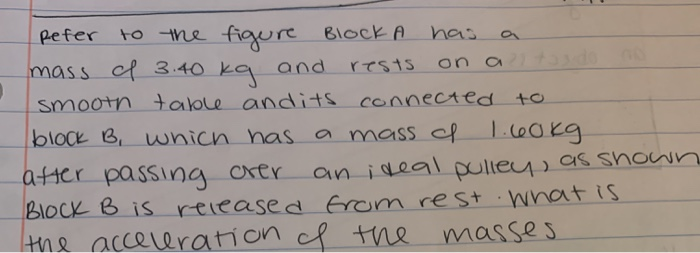 Refer to the figure Block A has a
mass of 3.40 kg and rests on a
smooth table and its connected to
block B, which has a mass of 1.60kg
after passing over an ideal pulley, as shown
Block B is released from rest. What is
the acceleration of the masses